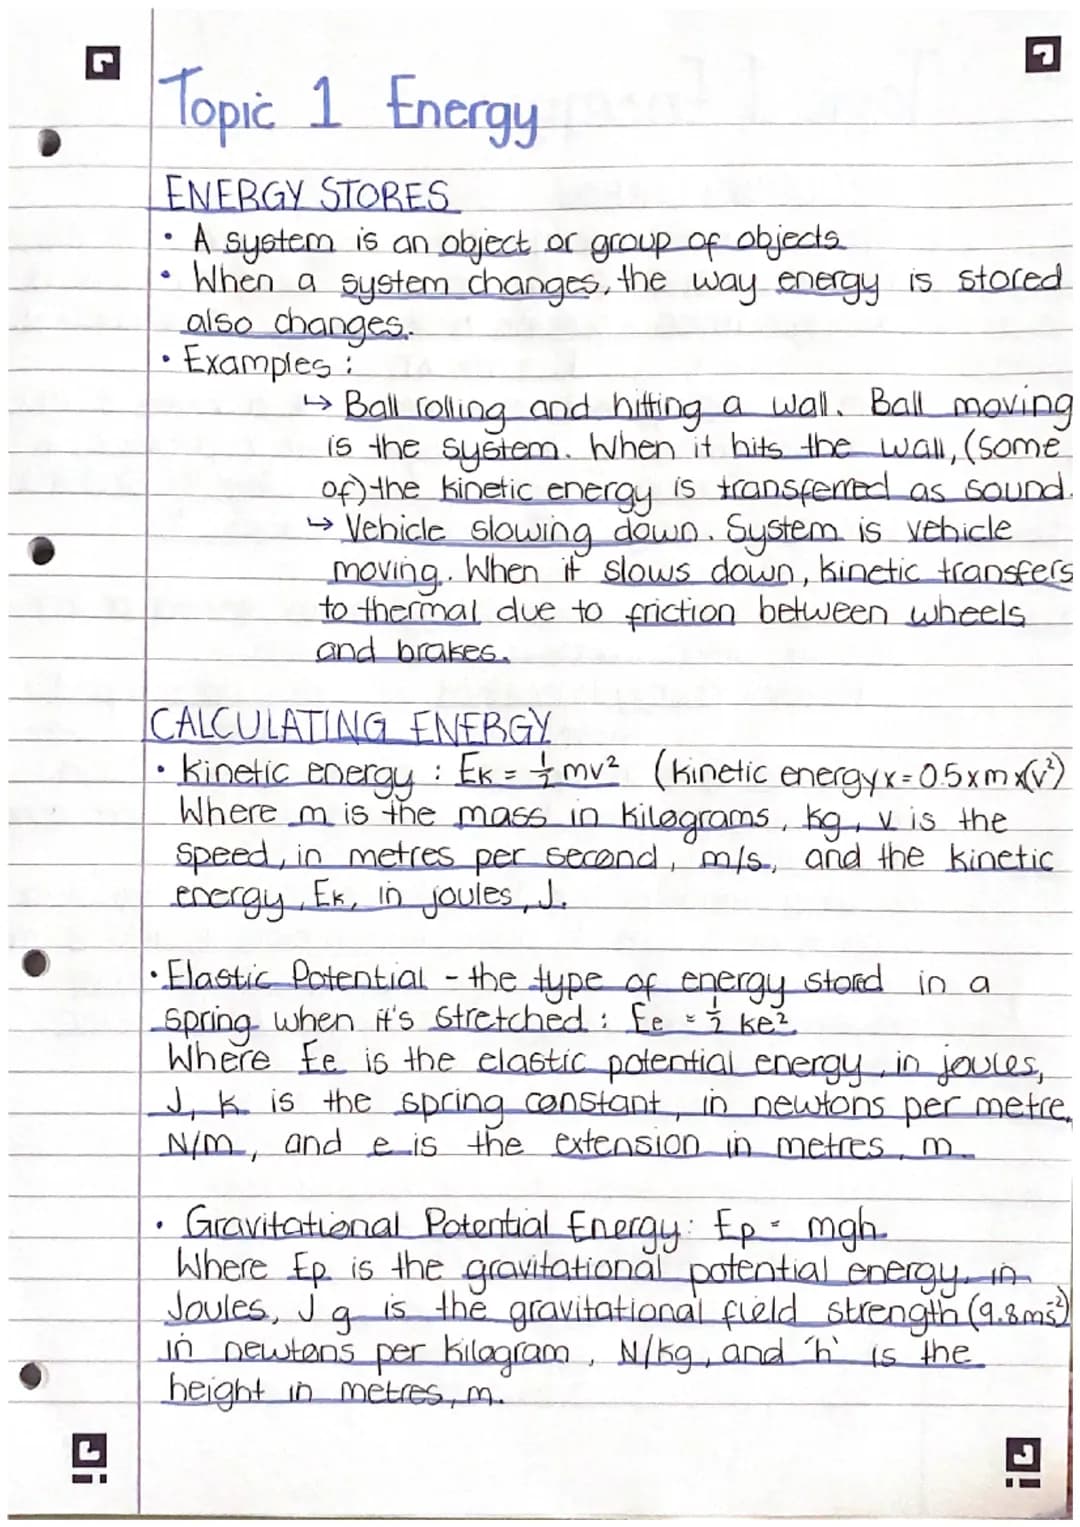 Topic 1 Energy
ENERGY STORES
• A system is an object or group of objects
• When a system changes, the way energy is stored
also changes.
• Examples :
↳ Ball rolling and hitting a wall. Ball moving
is the system. When it hits the wall, (some
of) the kinetic energy is transferred as sound.
↳ Vehicle slowing down. System is vehicle
moving. When it slows down, kinetic transfers
to thermal due to friction between wheels
and brakes.
CALCULATING ENERGY
• Kinetic energy : Ek = ½mv² (Kinetic energyx = 0.5xmx(v²)
Where m is the mass in kilograms, kg, v is the
speed, in metres per second, m/s, and the kinetic
energy, Ek, in joules, J.
• Elastic Potential - the type of energy stord in a
spring when it's stretched : Ee = ½ ke²
Where Ee is the elastic potential energy, in joules,
J, k is the spring constant, in newtons per metre,
N/m, and e is the extension in metres, m.
• Gravitational Potential Energy: Ep = mgh
Where Ep is the gravitational potential energy, in
Joules, J g is the gravitational field strength (9.8ms⁻²)
in newtons per kilogram, N/kg, and 'h' is the
height in metres, m.